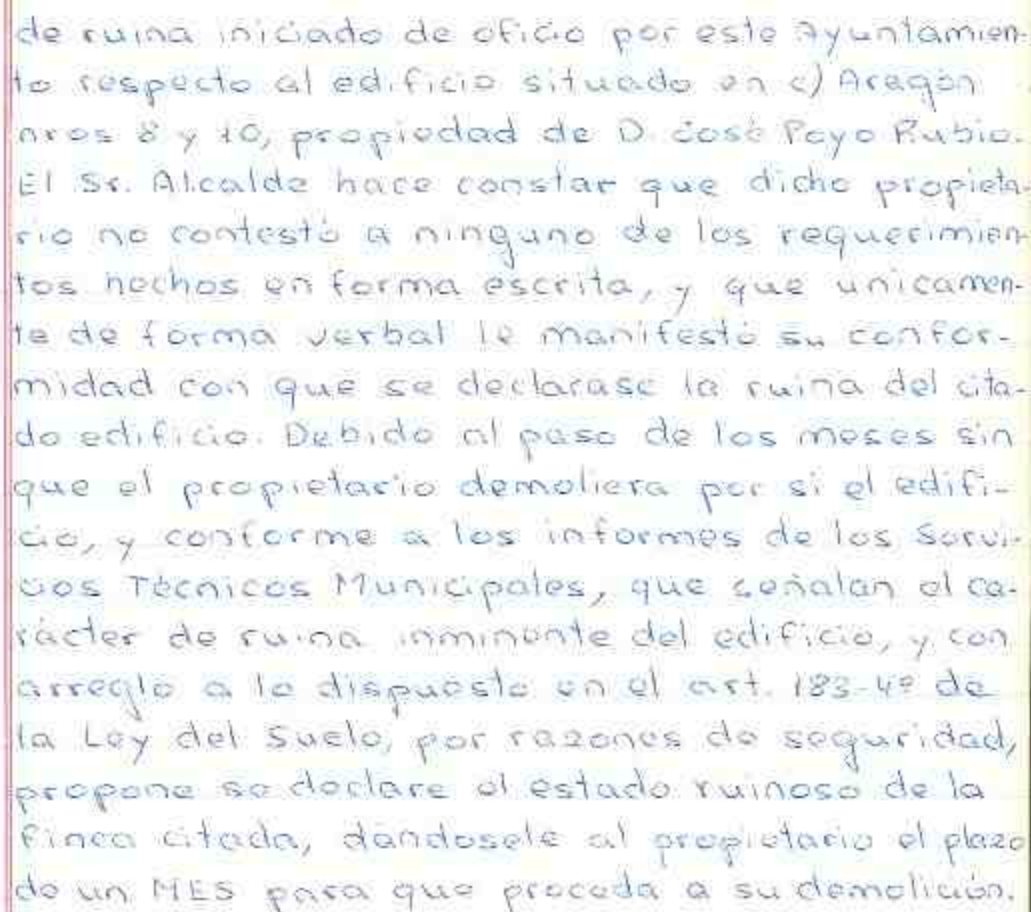 de ruina iniciado de oficio por este Ayuntamien-
to respecto al edificio situado en c) Aragón
nros 8 y 10, propiedad de D. José Poyo Rubio.
El Sr. Alcalde hace constar que dicho propieta-
rio no contestó a ninguno de los requerimien-
tos hechos en forma escrita, y que unicamen-
te de forma verbal le manifestó su confor-
midad con que se declarase la ruina del cita-
do edificio. Debido al paso de los meses sin
que el propietario demoliera por si el edifi-
cio, y conforme a los informes de los Servi-
cios Técnicos Municipales, que señalan el ca-
rácter de ruina inminente del edificio, y con
arreglo a lo dispuesto en el art. 183-4º de
la Ley del Suelo, por razones de seguridad,
propone se declare el estado ruinoso de la
finca citada, dándosele al propietario el plazo
de un MES para que proceda a su demolición.